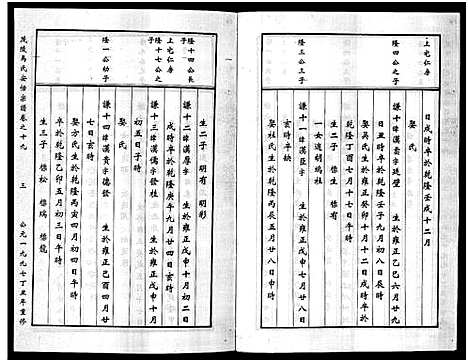 上宅仁房
隆四公之子
隆三公三子
日戌時卒於乾隆壬戌十二月
謙十 諱漢嵩字廷璧 生於雍正乙巳六月廿九
日丑時卒於乾隆壬子九月初八日
娶吳氏生於雍正癸卯十月十二日戌時卒於
乾隆丁酉七月十七日辰時
生二子 懷生 懷有
一女適胡瑞柱
謙十一諱漢臣字 生於雍正丁未七月廿八日
辰時卒缺
娶杜氏生於乾隆丙辰五月廿八日申時
隆十四公長子
上宅仁房
隆十七公之子
隆一公幼子
生二子 朋有 朋彩
謙十二諱漢厚字 生於雍正戊申十月初二日
戌時卒於乾隆庚申九月廿四日亥時
謙十三諱漢儒字發柱 生於雍正戊申十月
初五日子時
娶 氏
謙十四諱漢貴字德發 生於雍正己酉四月廿
七日亥時
娶方氏生於乾隆丙寅四月初四日午時
卒於乾隆乙卯五月初三日午時
生三子 懷松 懷瑞 懷龍
茂陵馬氏安悟宗譜卷之十九 三 公元一九九七丁丑年重修